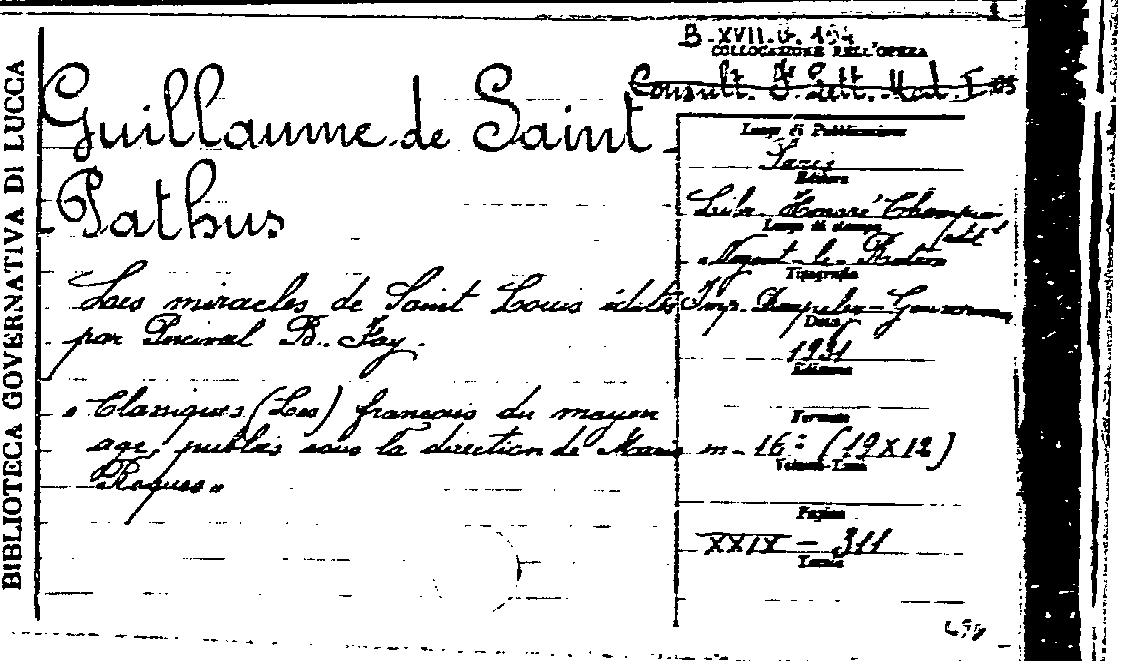 BIBLIOTECA GOVERNATIVA DI LUCCA
B.XVII.G.194
COLLOCAZIONE DELL'OPERA
Consult. F. Lett. Mod. F. 95
Guillaume de Saint
Pathus
Les miracles de Saint Louis édités
par Percival B. Fay.
"Classiques (Les) français du moyen
age, publiés sous la direction de Mario
Roques"
Luogo di Pubblicazione
Paris
Editore
Libr. Honoré Champion
edit.
Luogo di stampa
Nogent-le-Rotrou
Tipografia
Imp. Daupeley-Gouverneur
Data
1931
Edizione
Formato
in-16° (19X12)
Volumi-Tomi
Pagine
XXIX - 311
Tavole